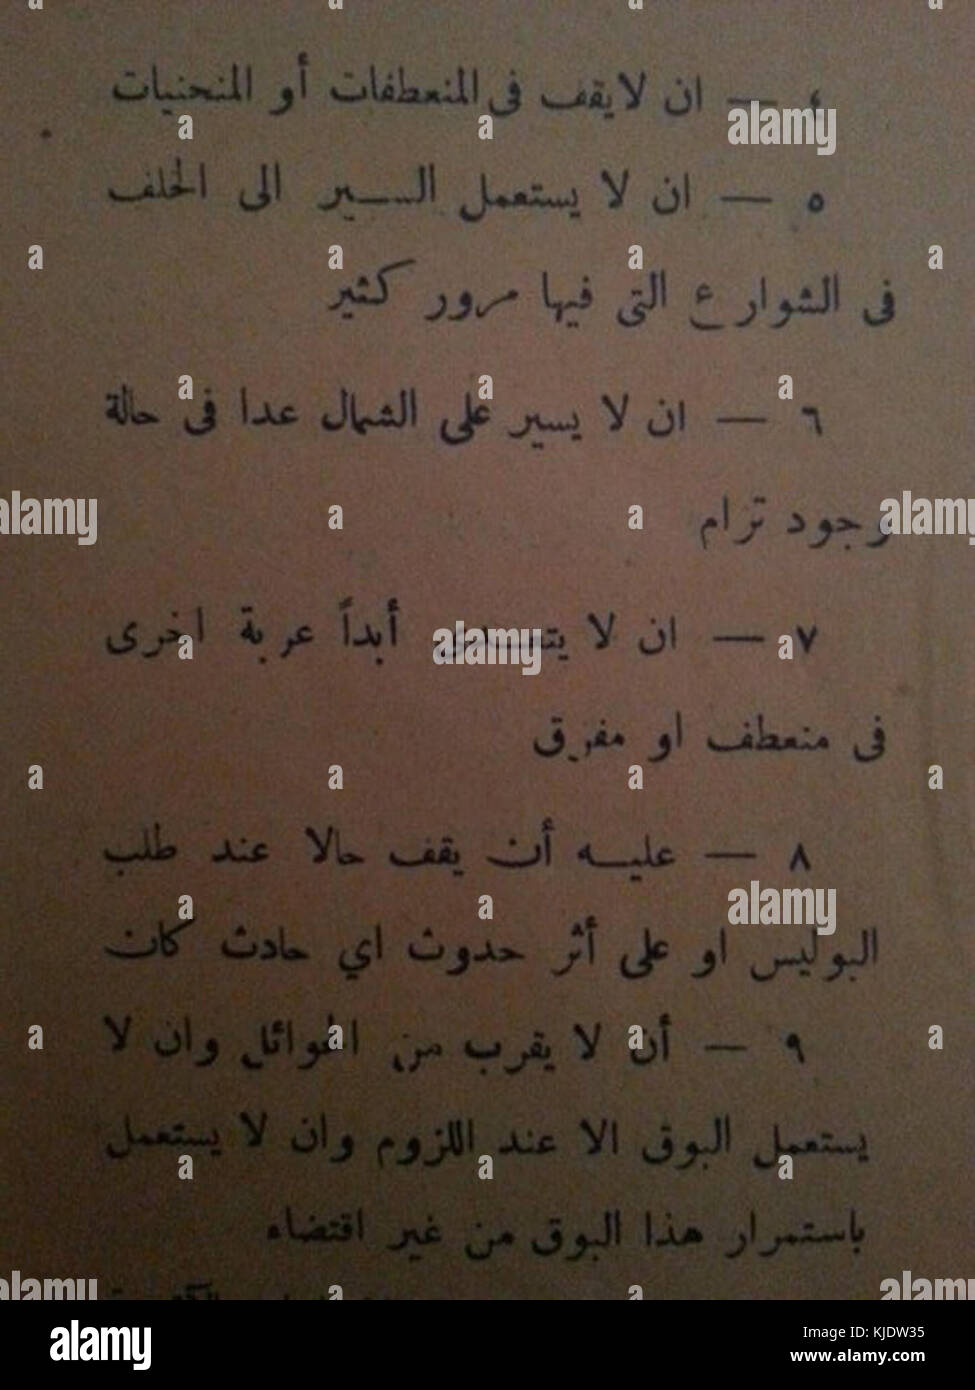 ٤ — ان لا يقف فى المنعطفات أو المنحنيات
٥ — ان لا يستعمل السير الى الخلف
فى الشوارع التى فيها مرور كثير
٦ — ان لا يسير على الشمال عدا فى حالة
وجود ترام
٧ — ان لا يتعدى أبداً عربة اخرى
فى منعطف او مفرق
٨ — عليه أن يقف حالا عند طلب
البوليس او على أثر حدوث اي حادث كان
٩ — أن لا يقرب من الهوائل وان لا
يستعمل البوق الا عند اللزوم وان لا يستعمل
باستمرار هذا البوق من غير اقتضاء
alamy
Image ID: KJDW35
www.alamy.com